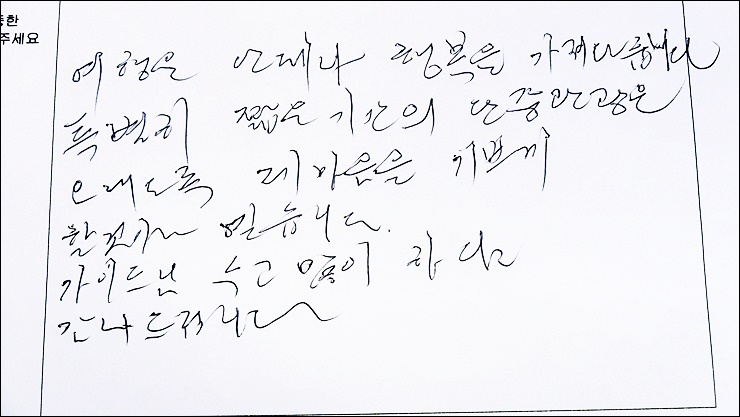 한
주세요
여행은 언제나 행복을 가져다줍니다
특별히 짧은 기간의 단풍관광은
오래도록 제 마음을 기쁘게
할것이라 믿습니다.
가이드님 수고 많이 하
감사드립니다